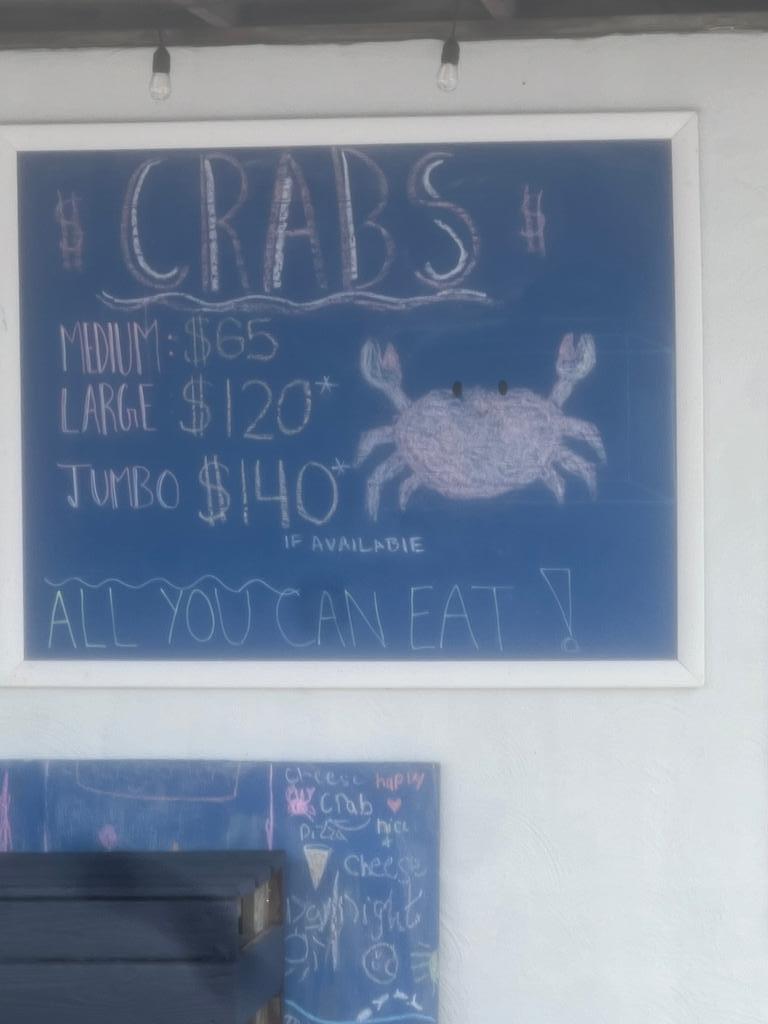 $ CRABS $
MEDIUM: $65
LARGE $120*
JUMBO $140*
IF AVAILABLE
ALL YOU CAN EAT!
cheese happy
crab
pizza nice
cheese
Day Night